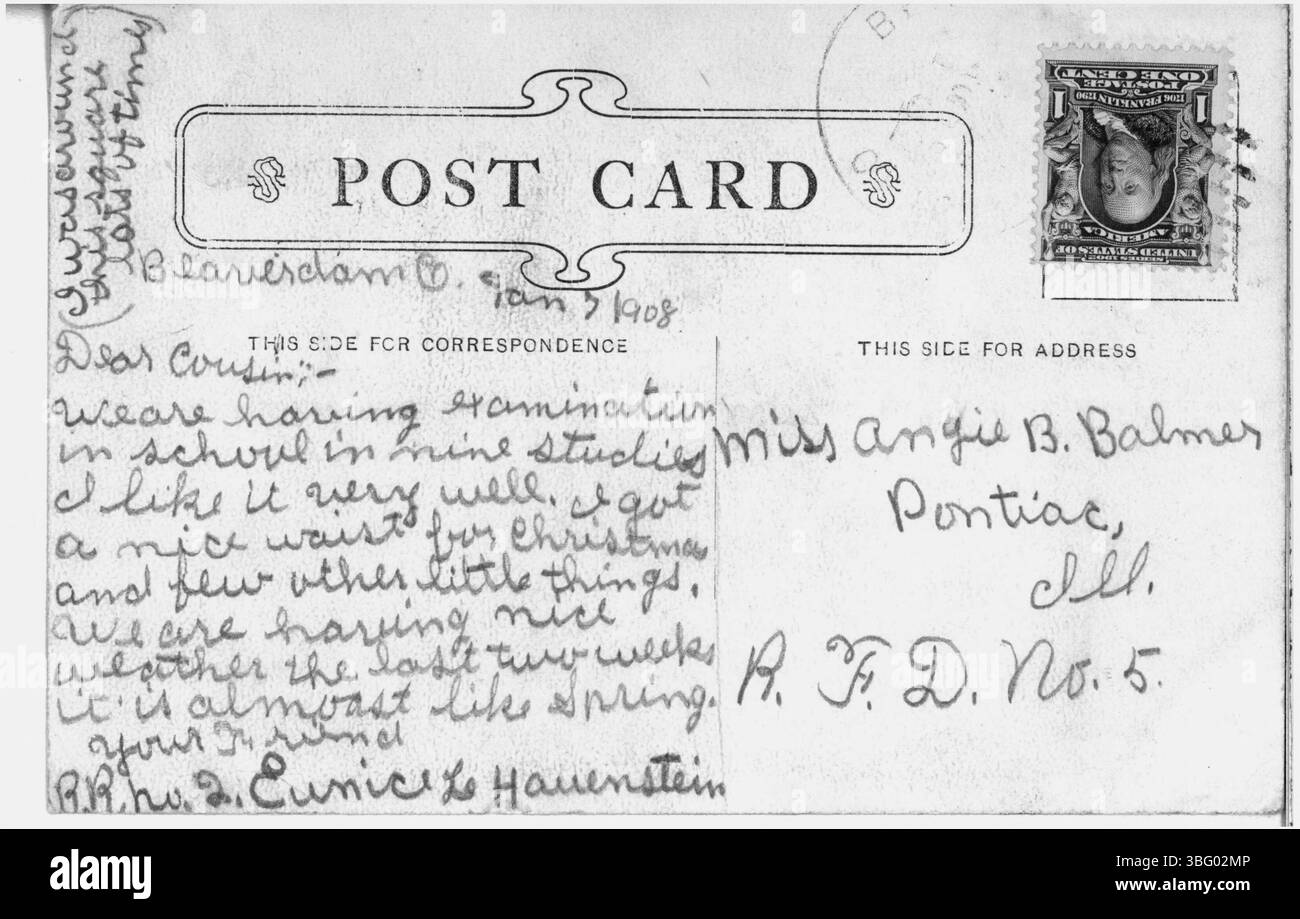 (I was around
this square
lots of time)
POST CARD
Beaverdam O. Jan 3 1908
THIS SIDE FOR CORRESPONDENCE
Dear Cousin:-
We are having examination
in school in nine studies
I like it very well. I got
a nice waist for Christmas
and few other little things.
We are having nice
weather the last two weeks
it is almoast like Spring.
Your Friend
R.R. no. 2. Eunice L Hauenstein
1 1
POSTAGE
ONE CENT
1706 FRANKLIN 1790
UNITED STATES OF
AMERICA
SERIES 1902
THIS SIDE FOR ADDRESS
Miss Angie B. Balmer
Pontiac,
Ill.
R. F. D. No. 5.
alamy
Image ID: 3BG02MP
www.alamy.com